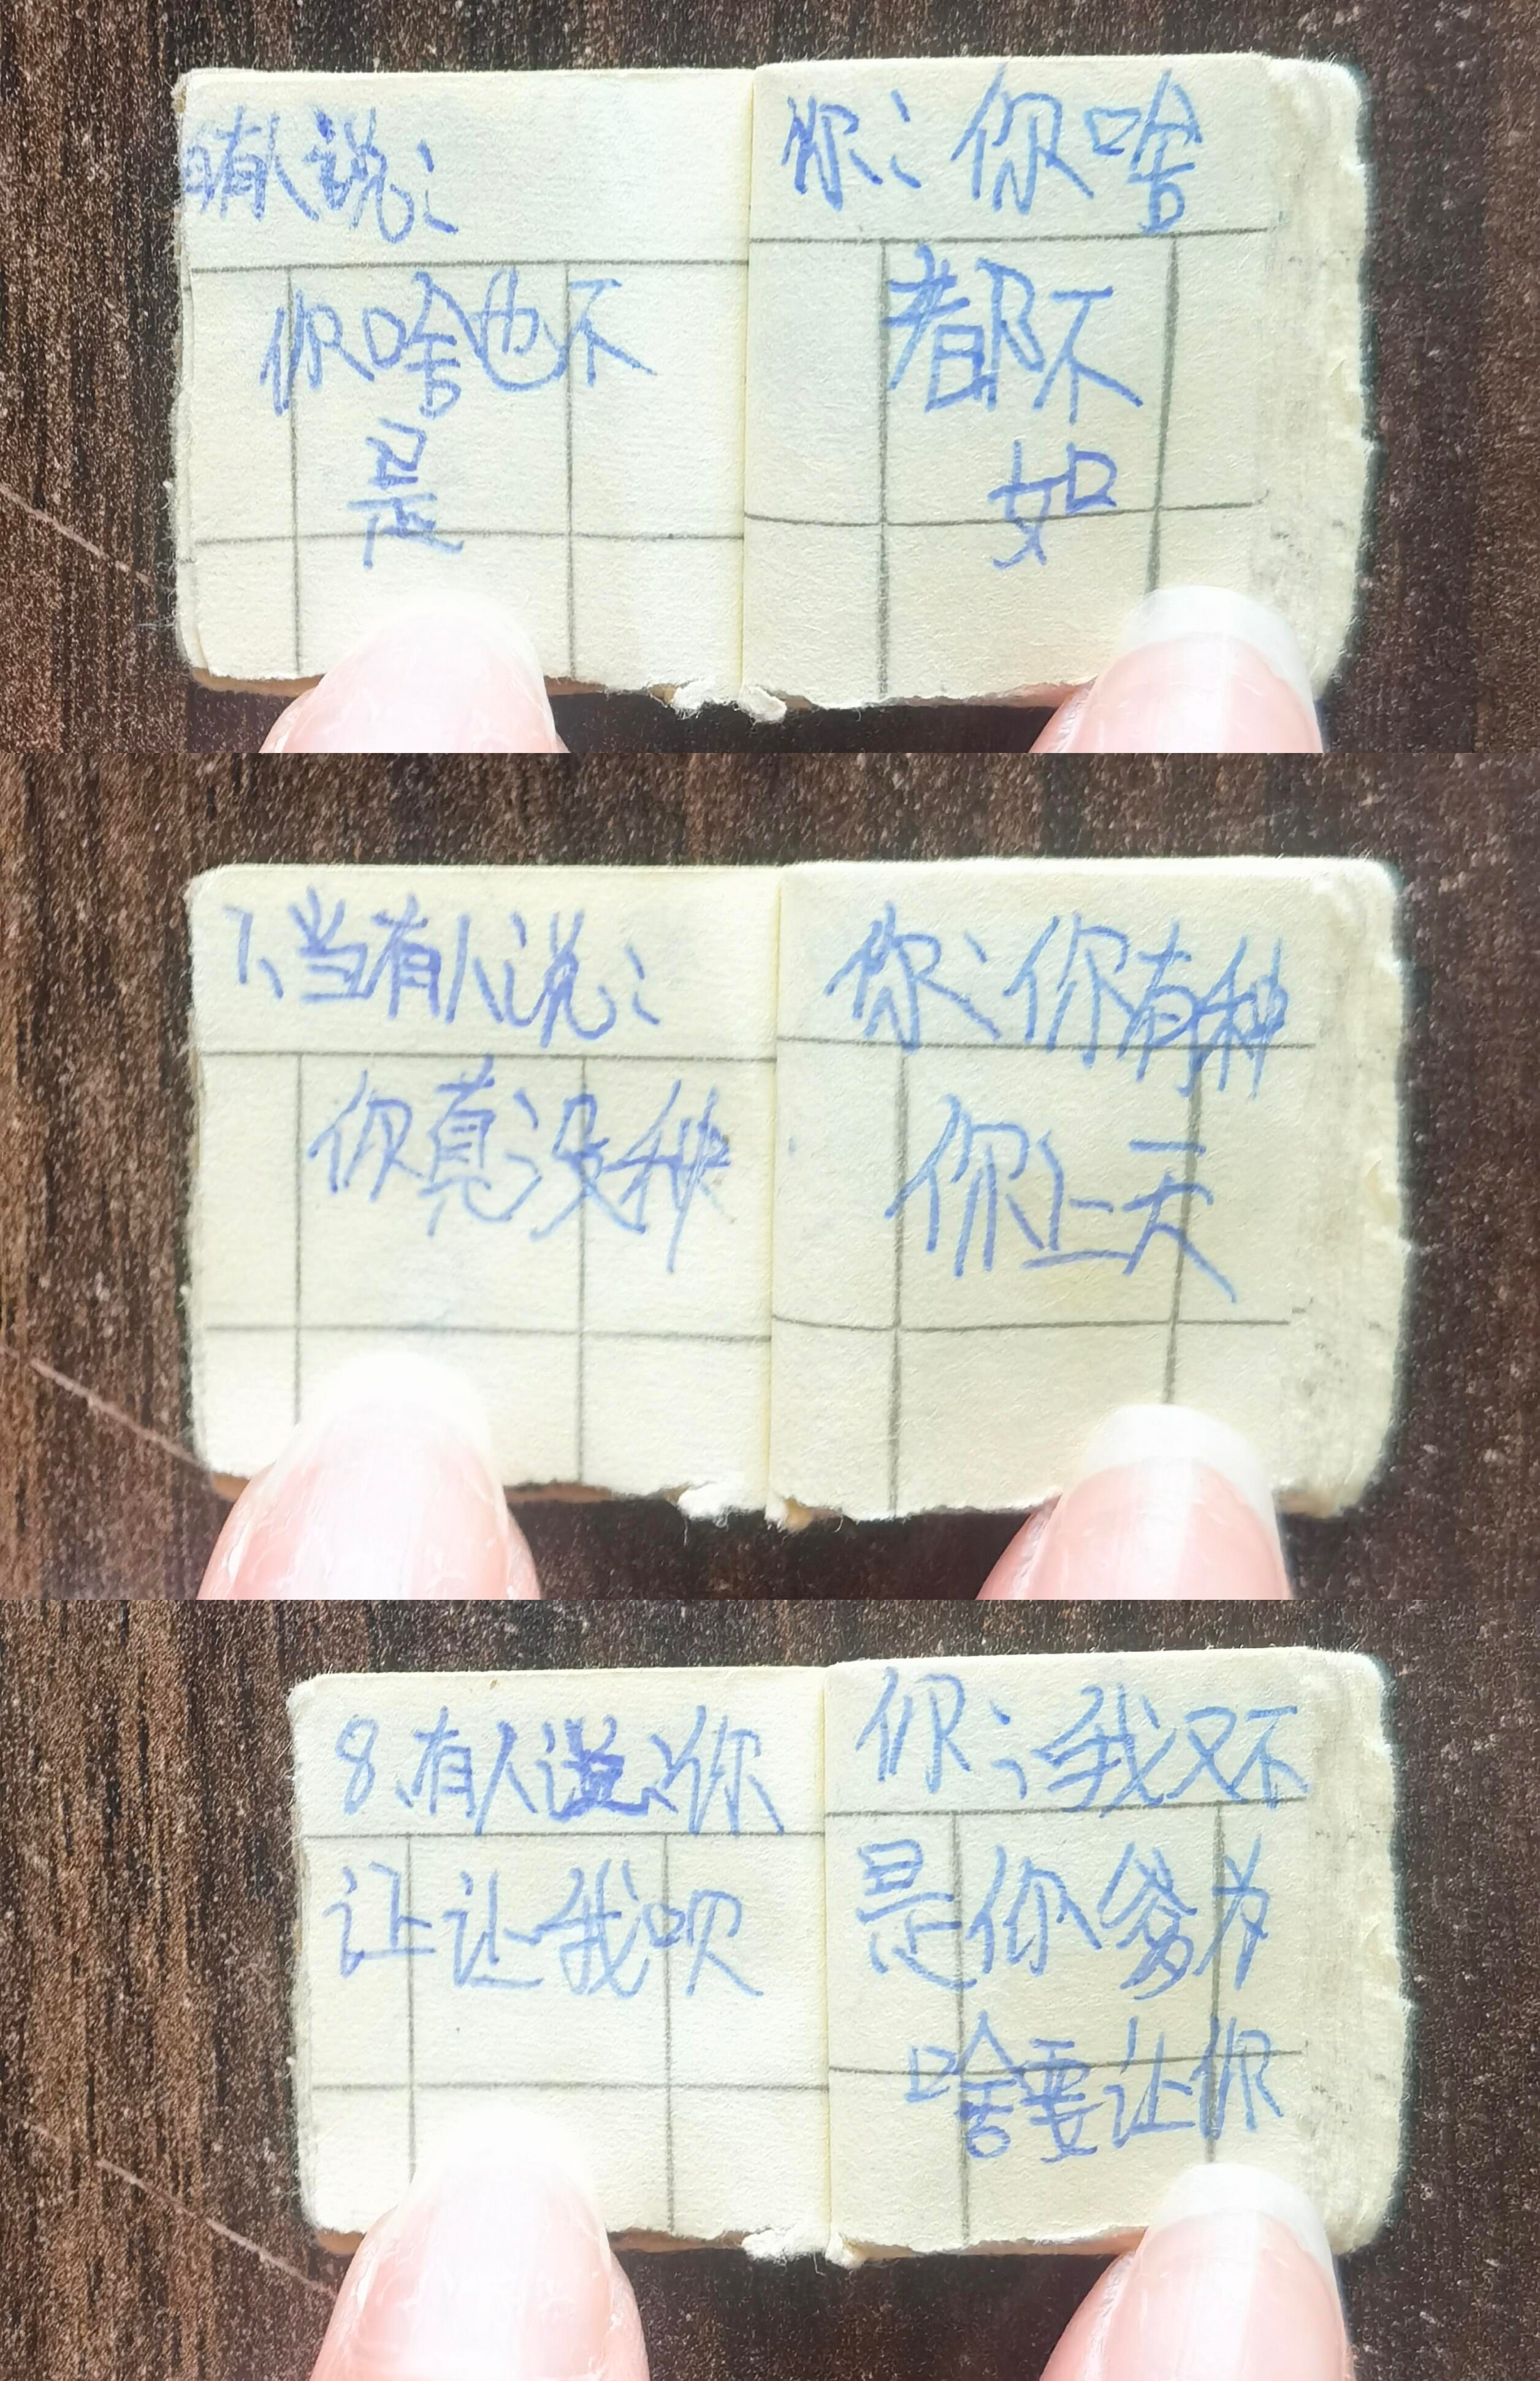 有人说:
你啥也不
是
你:你啥
都不
如
7、当有人说:
你真没种
你:你有种
你上天
8、有人说:你
让让我呗
你:我又不
是你爹为
啥要让你